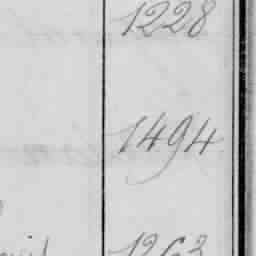 1228
1494
1263